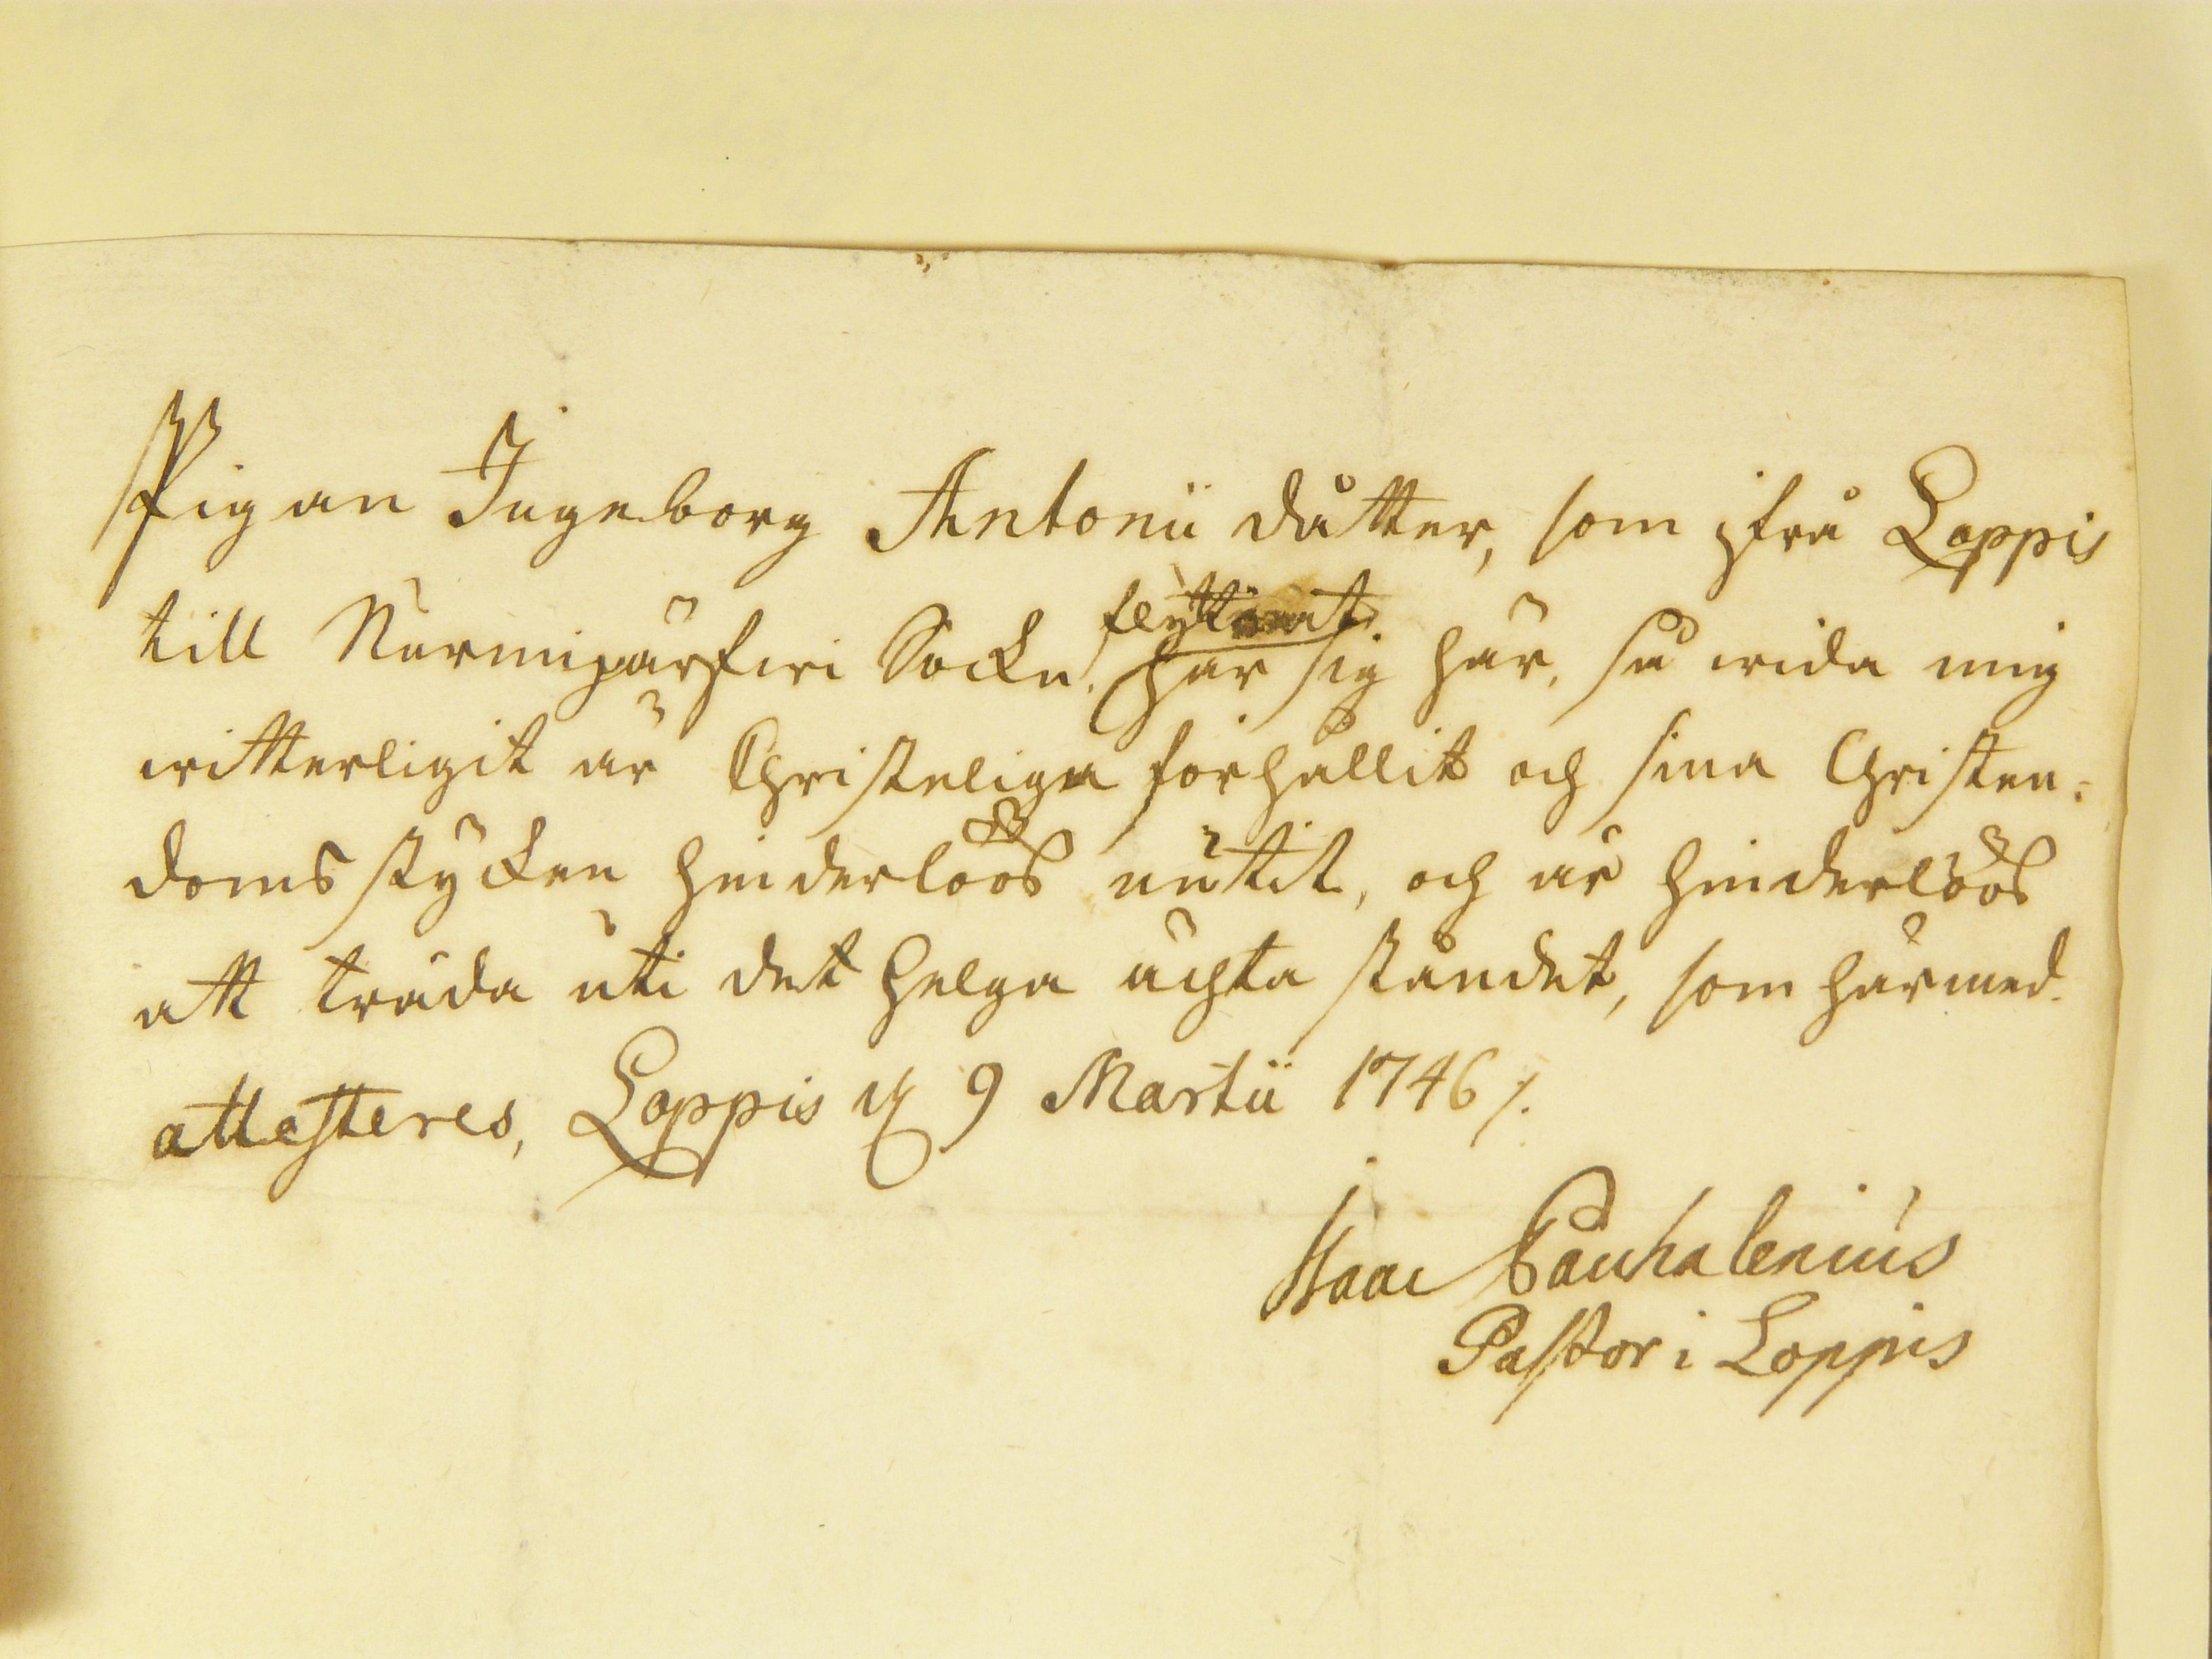 Pigan Ingeborg Antonii dåtter, som ifrå Loppis
till Nurmijärfwi Sockn, flyttat
har sig här, så wida mig
witterligit är Christeliga förhållit och sina Christen-
doms stycken hinderlöös nütit, och är hinderlöös
att träda uti det helga ächta ståndet, som härmed
attesteres, Loppis d 9 Martii 1746 /.
Isaac Pauhalenius
Pastor i Loppis